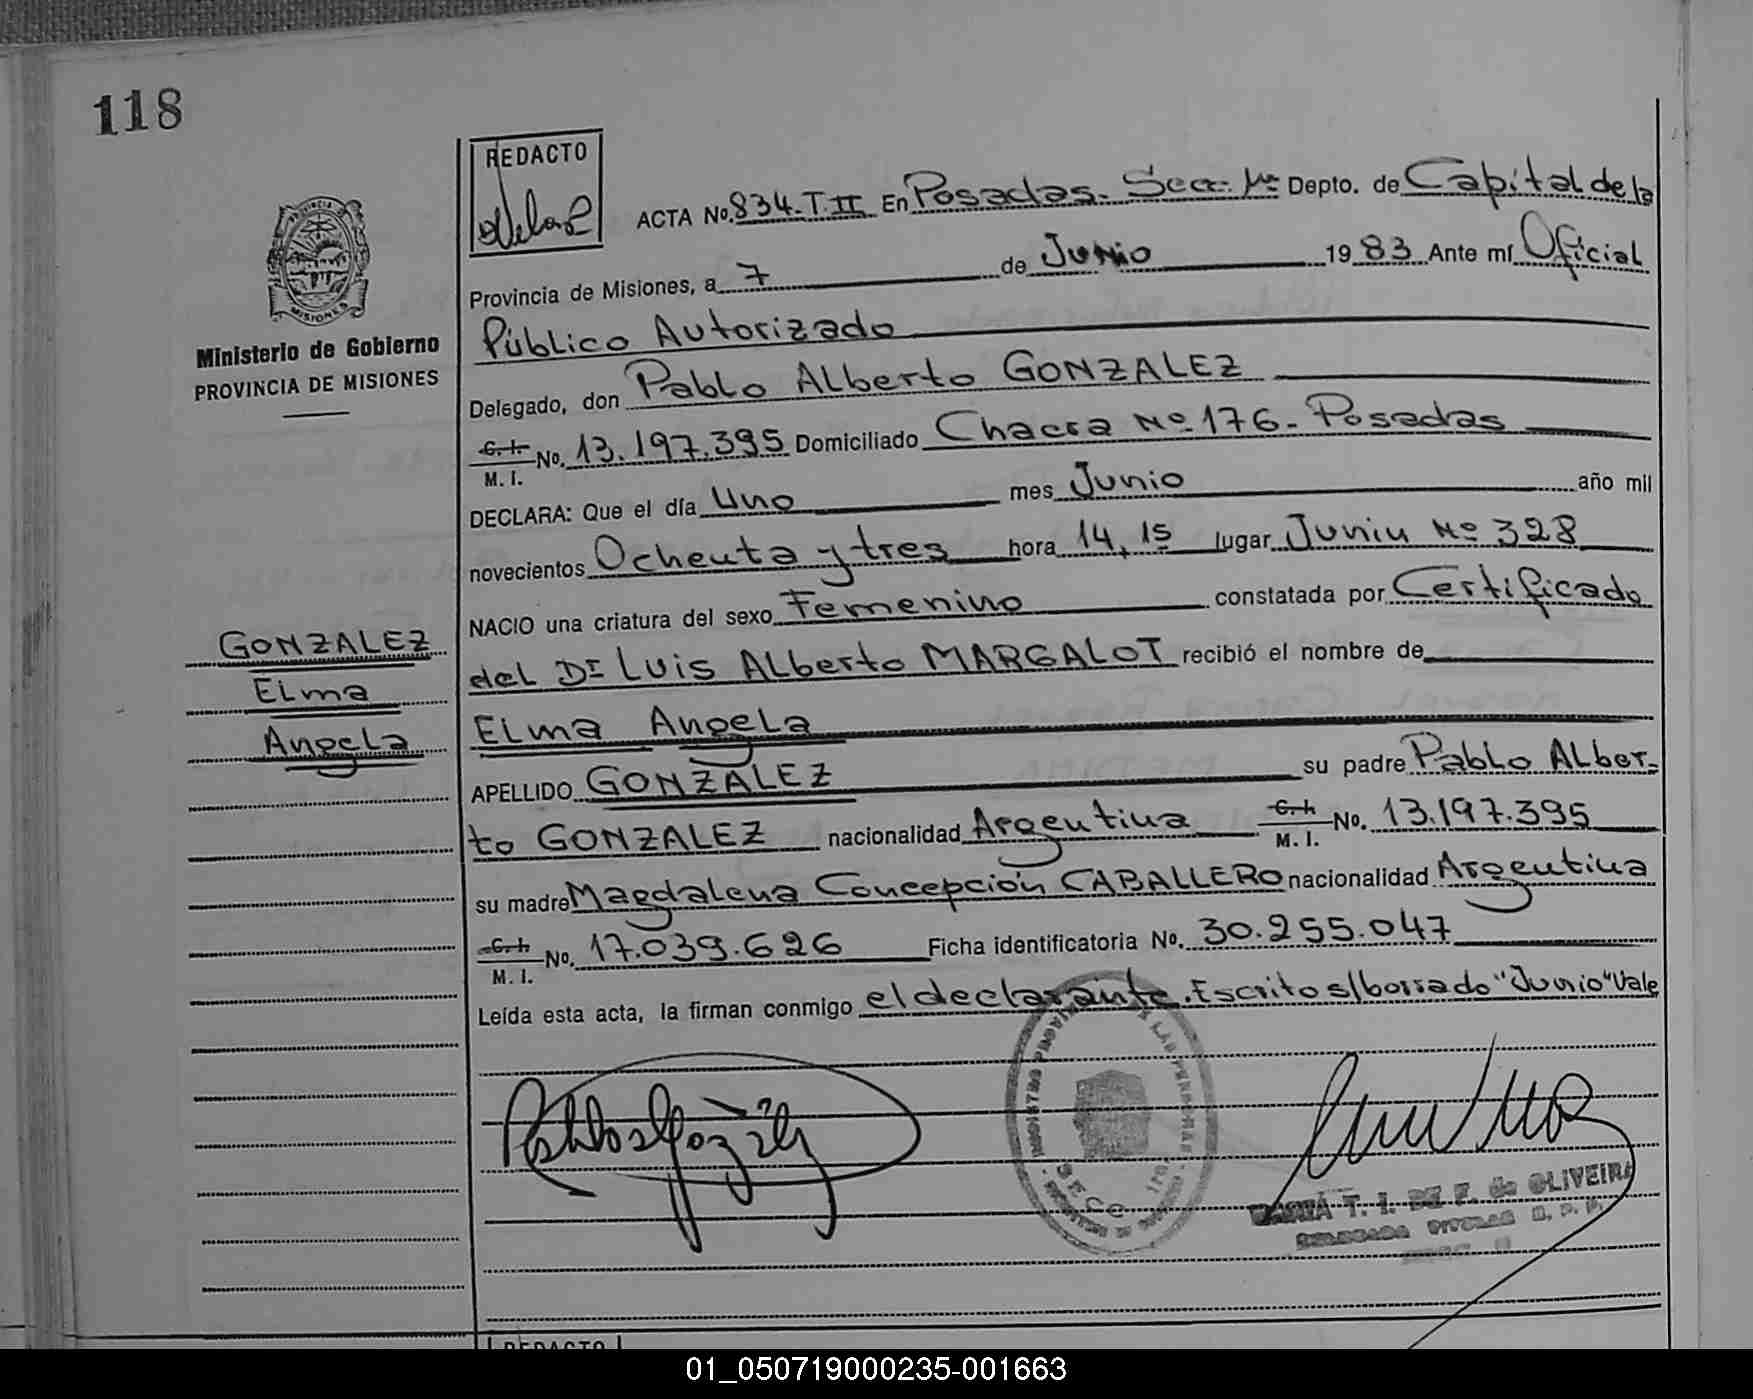 118
REDACTO
ACTA No. 834. T. II En Posadas. Secc. 1ra Depto. de Capital de la
Provincia de Misiones, a 7 de Junio 1983 Ante mí Oficial
Público Autorizado
Delegado, don Pablo Alberto GONZALEZ
C. I. No. 13.197.395 Domiciliado Chacra Nº 176. Posadas
M. I.
DECLARA: Que el día Uno mes Junio año mil
novecientos Ochenta y tres hora 14,15 lugar Junin Nº 328
NACIO una criatura del sexo Femenino constatada por Certificado
del Dr Luis Alberto MARGALOT recibió el nombre de
Elma Angela
APELLIDO GONZALEZ su padre Pablo Alber-
to GONZALEZ nacionalidad Argentina C. I. No. 13.197.395
M. I.
su madre Magdalena Concepción CABALLERO nacionalidad Argentina
C. I. No. 17.039.626 Ficha identificatoria No. 30.255.047
M. I.
Leída esta acta, la firman conmigo el declarante. Escrito s/borrado "Junio" Vale
MISIONES
Ministerio de Gobierno
PROVINCIA DE MISIONES
GONZALEZ
Elma
Angela
T. I. DE F. de OLIVEIRA
REDACTO
01_050719000235-001663